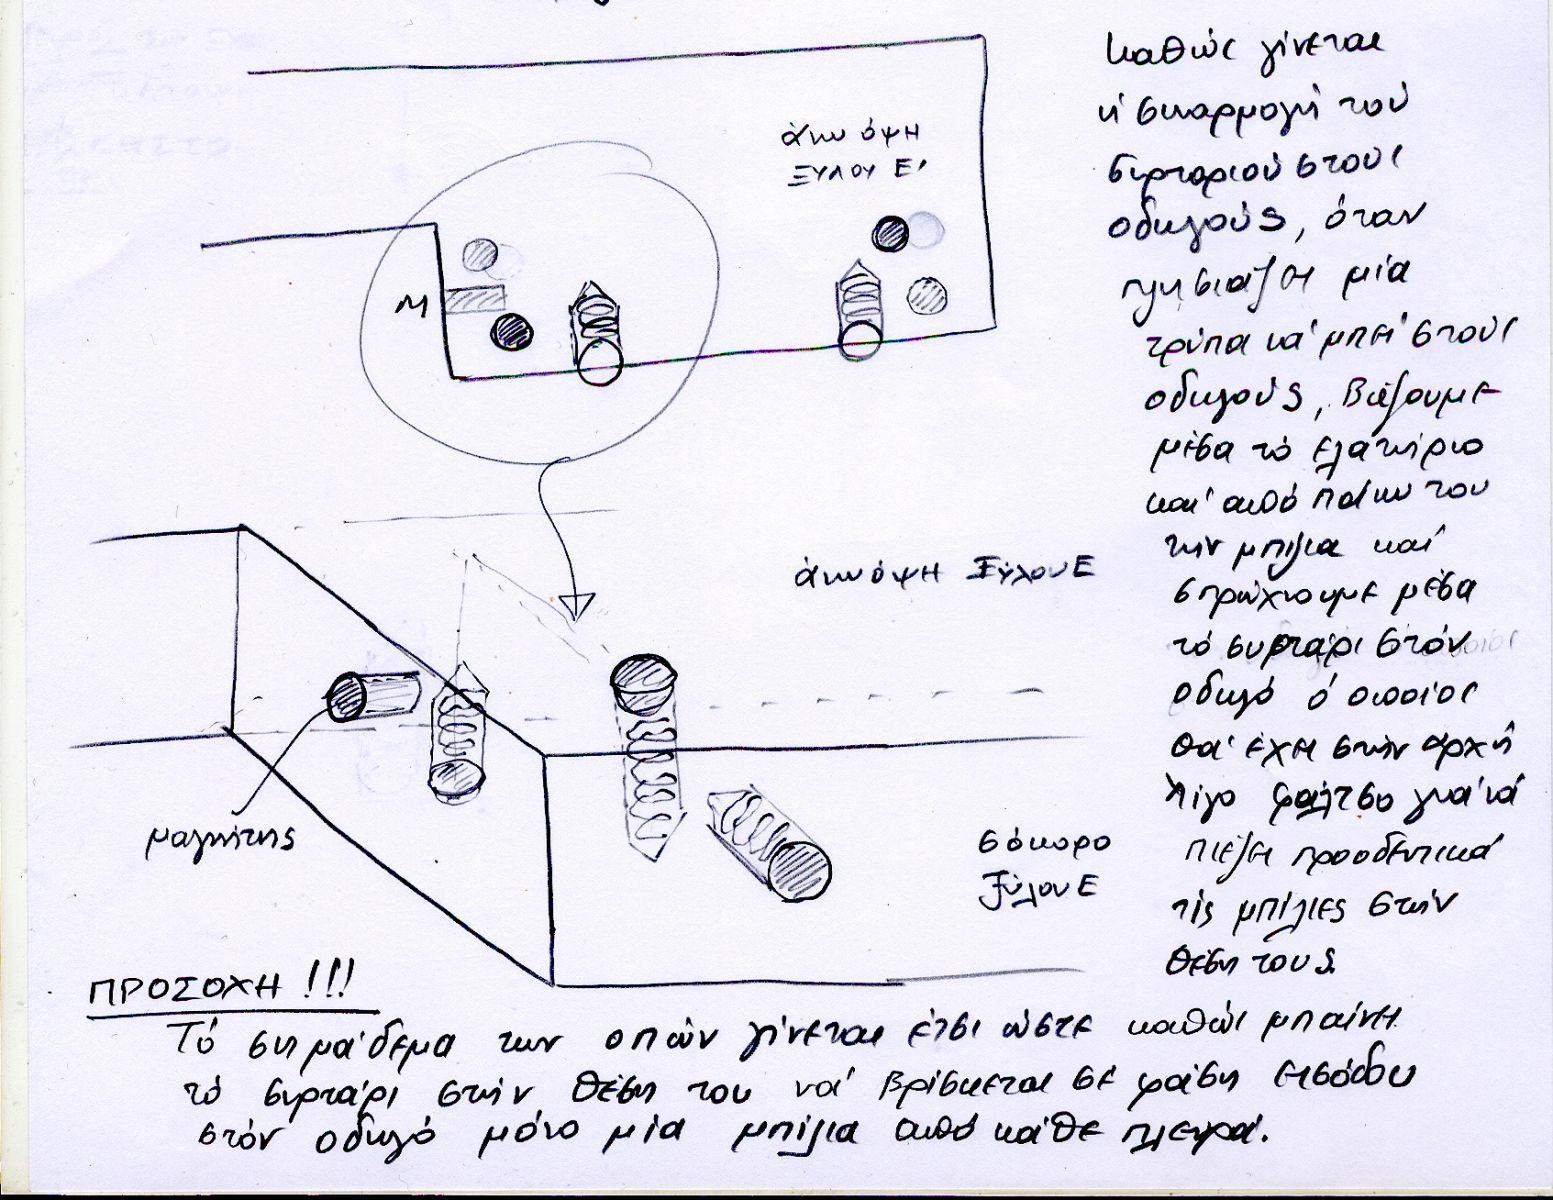 καθώς γίνεται
ἡ συναρμογή τοῦ
συρταριοῦ στους
οδηγούς, όταν
πλησιάζει μία
τρύπα νά μπεί στούς
οδηγούς, βάζουμε
μέσα τό ελατήριο
καί από πάνω του
τήν μπίλια καί
σπρώχνουμε μέσα
τό συρτάρι στόν
οδηγό ό οποίος
θά έχει στήν αρχή
λίγο φάλτσο γιά νά
πιέζει προοδευτικά
τίς μπίλιες στήν
θέση τους.
άνω όψη
ξύλου Ε'
Μ
άνω όψη ξύλου Ε
μαγνήτης
σόκορο
ξύλου Ε
ΠΡΟΣΟΧΗ !!!
Τό σημάδεμα των οπών γίνεται έτσι ώστε καθώς μπαίνει
τό συρτάρι στήν θέση του νά βρίσκεται σέ φάση εισόδου
στόν οδηγό μόνο μία μπίλια από κάθε πλευρά.